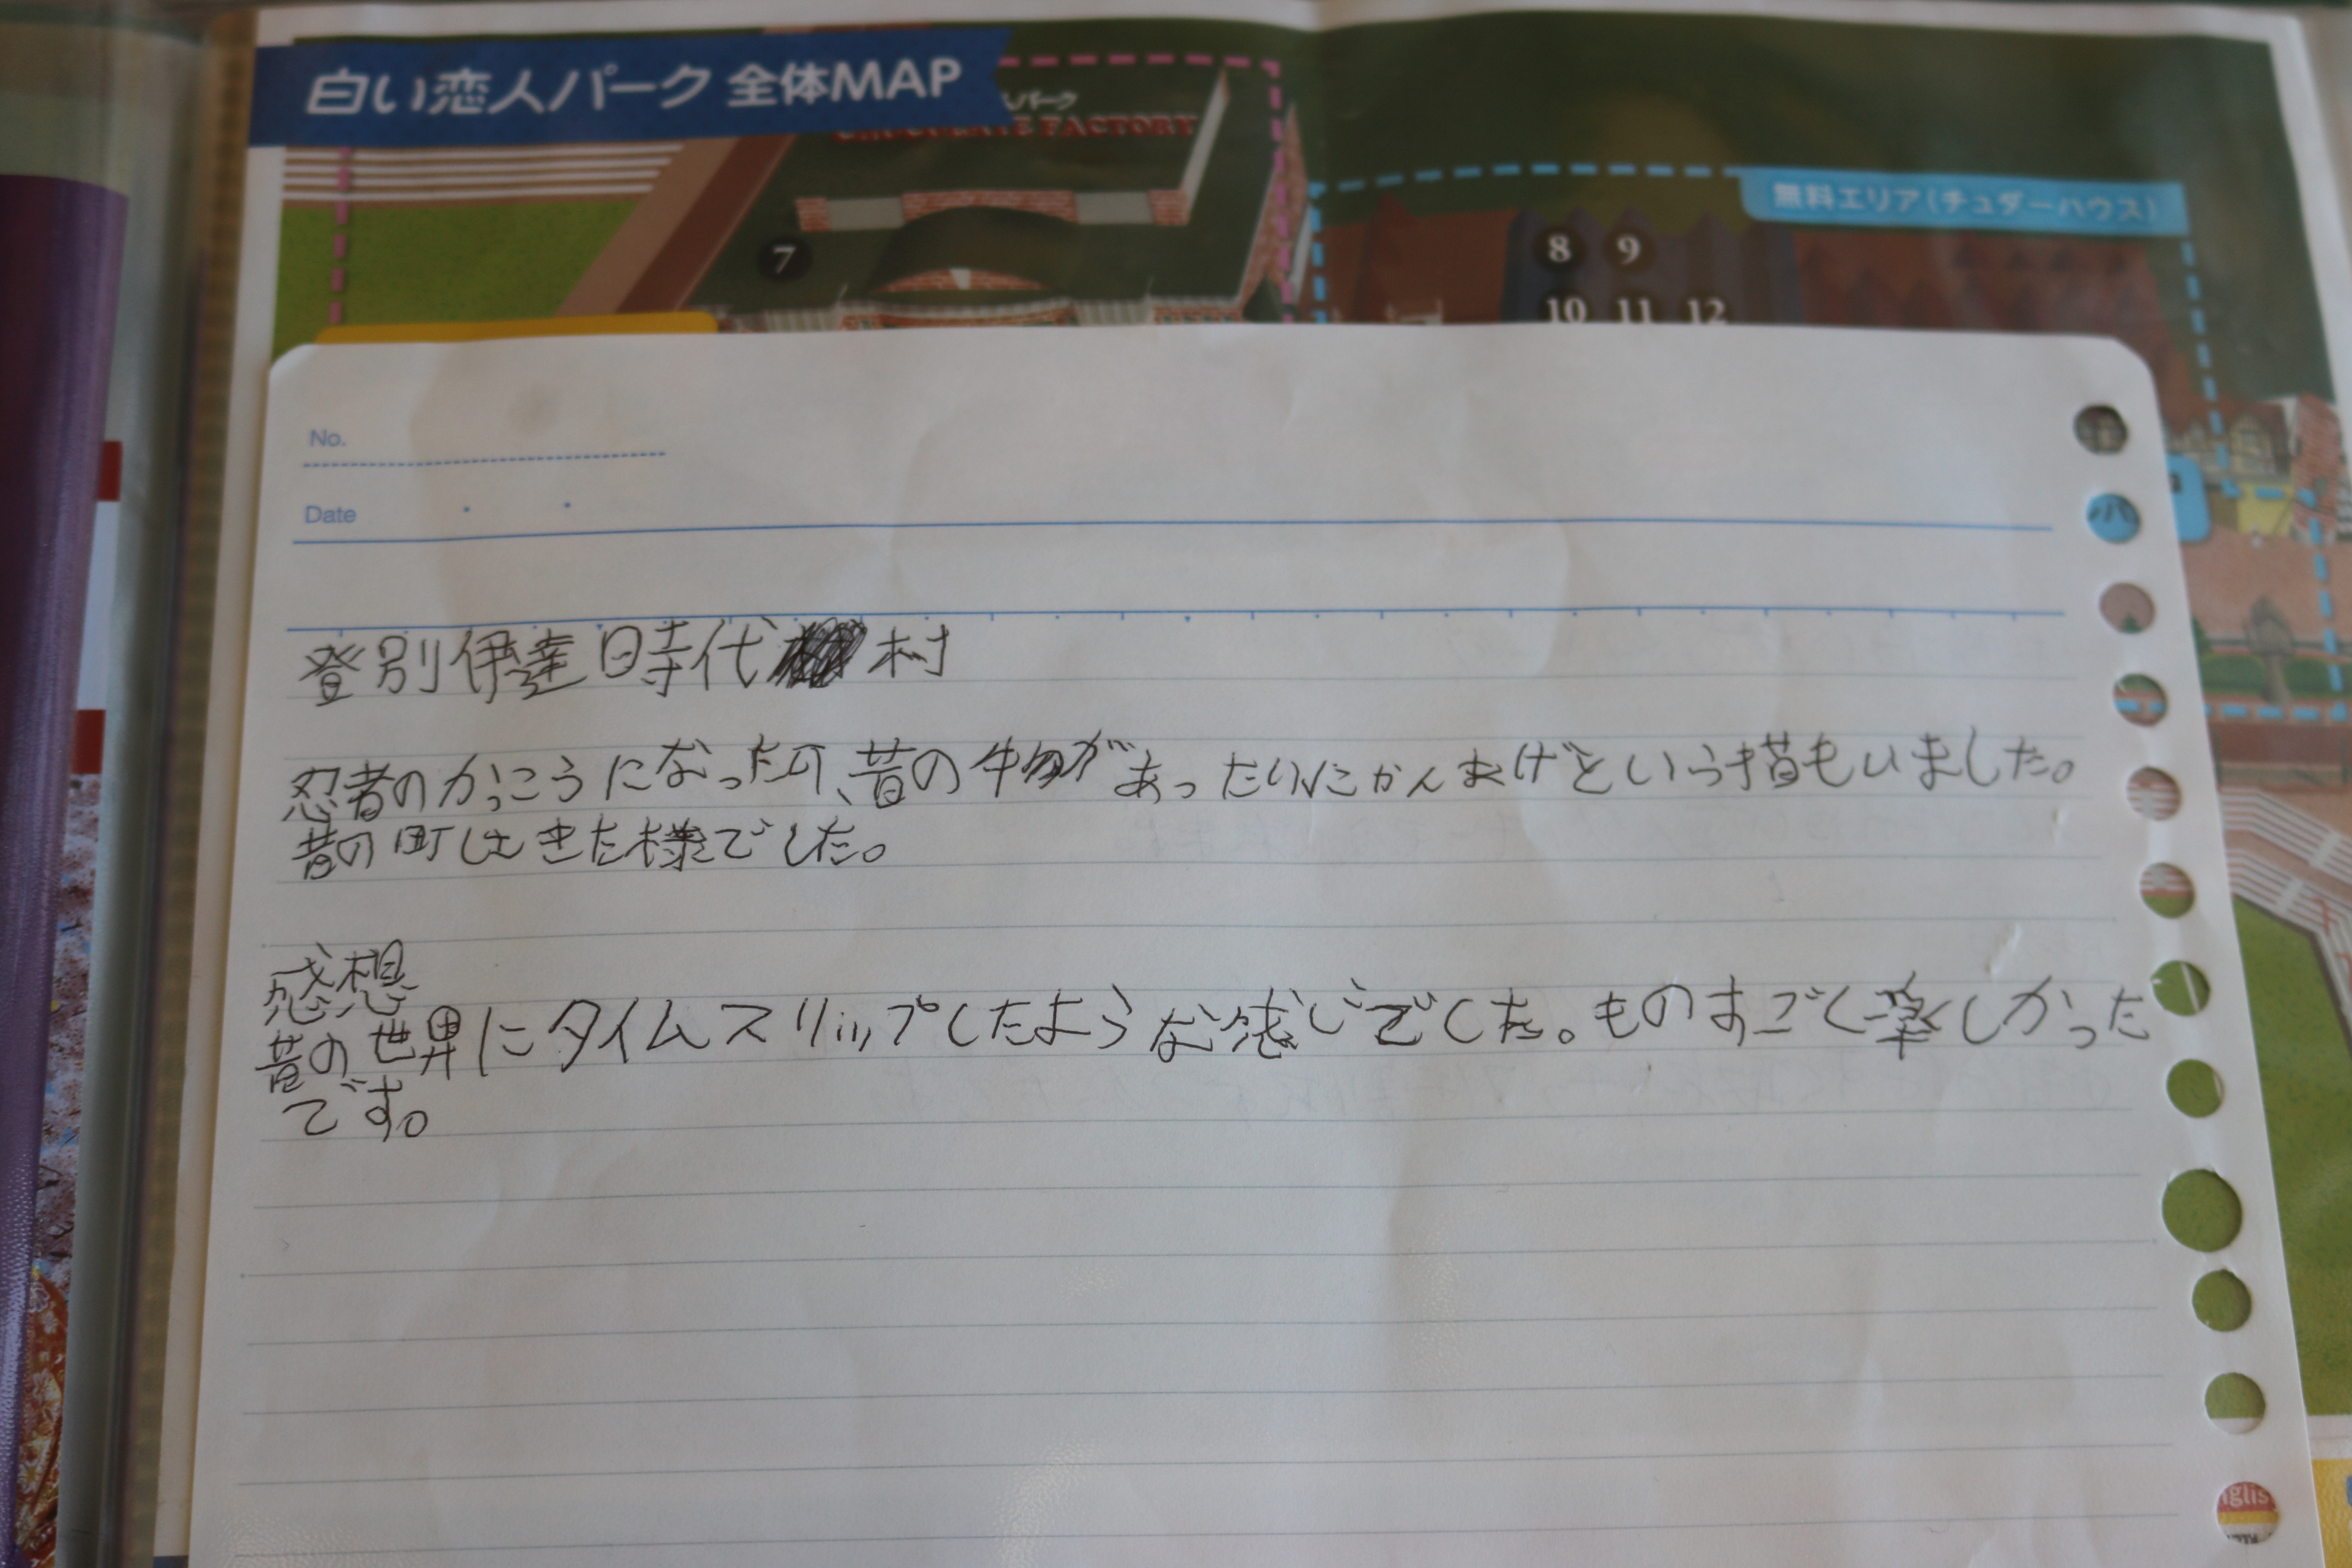 白い恋人パーク 全体MAP
人パーク
CHOCOLATE FACTORY
無料エリア(チュダーハウス)
7
8 9
10 11 12
No.
Date
登別伊達時代村
忍者のかっこうになったり、昔の物があったりにゃんまげという猫もいました。
昔の町にきた様でした。
感想
昔の世界にタイムスリップしたような感じでした。ものすごく楽しかった
です。